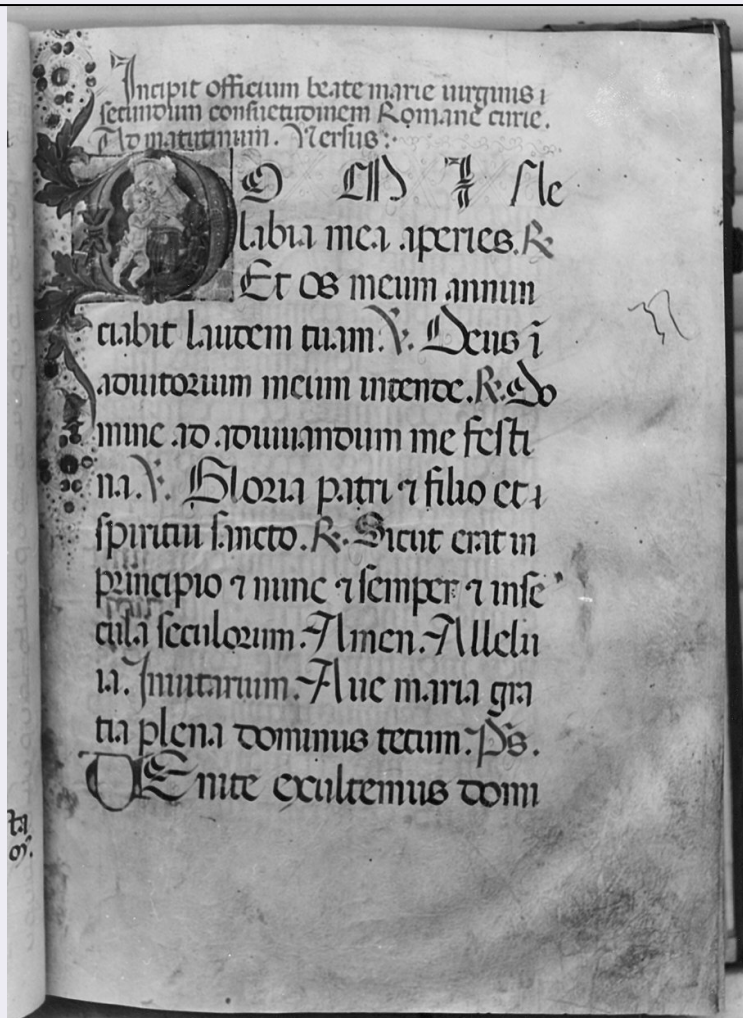 Incipit officium beate marie uirginis
secundum consuetudinem Romane curie.
Ad matutinum. Versus:
DOMINE
labia mea aperies. ℟
Et os meum annun
ciabit laudem tuam. ℣. Deus ī
adiutorium meum intende. ℟. Do
mine ad adiuuandum me festi
na. ℣. Gloria patri ⁊ filio et
spiritui sancto. ℟. Sicut erat in
principio ⁊ nunc ⁊ semper ⁊ in se
cula seculorum. Amen. Allelu
ia. Inuitatorium. Aue maria gra
tia plena dominus tecum. Ps.
VEnite exultemus domi
ta